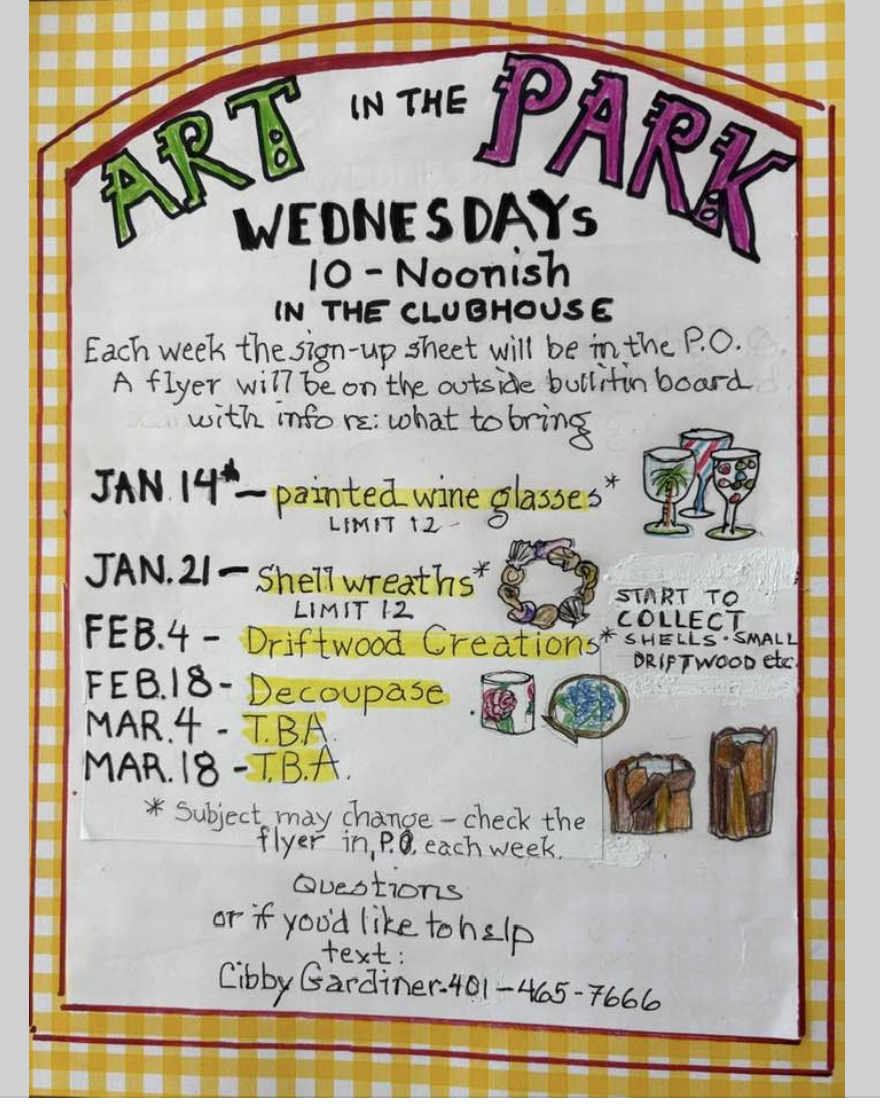 ART IN THE PARK
WEDNESDAYS
10 - Noonish
IN THE CLUBHOUSE
Each week the sign-up sheet will be in the P.O.
A flyer will be on the outside bullitin board
with info re: what to bring
JAN. 14* - painted wine glasses*
LIMIT 12
JAN. 21 - Shell wreaths*
LIMIT 12
FEB. 4 - Driftwood Creations*
START TO
COLLECT
SHELLS · SMALL
DRIFTWOOD etc.
FEB. 18 - Decoupase
MAR. 4 - T.B.A.
MAR. 18 - T.B.A.
* Subject may change - check the
flyer in P.O. each week.
Questions
or if you'd like to help
text:
Cibby Gardiner - 401-465-7666